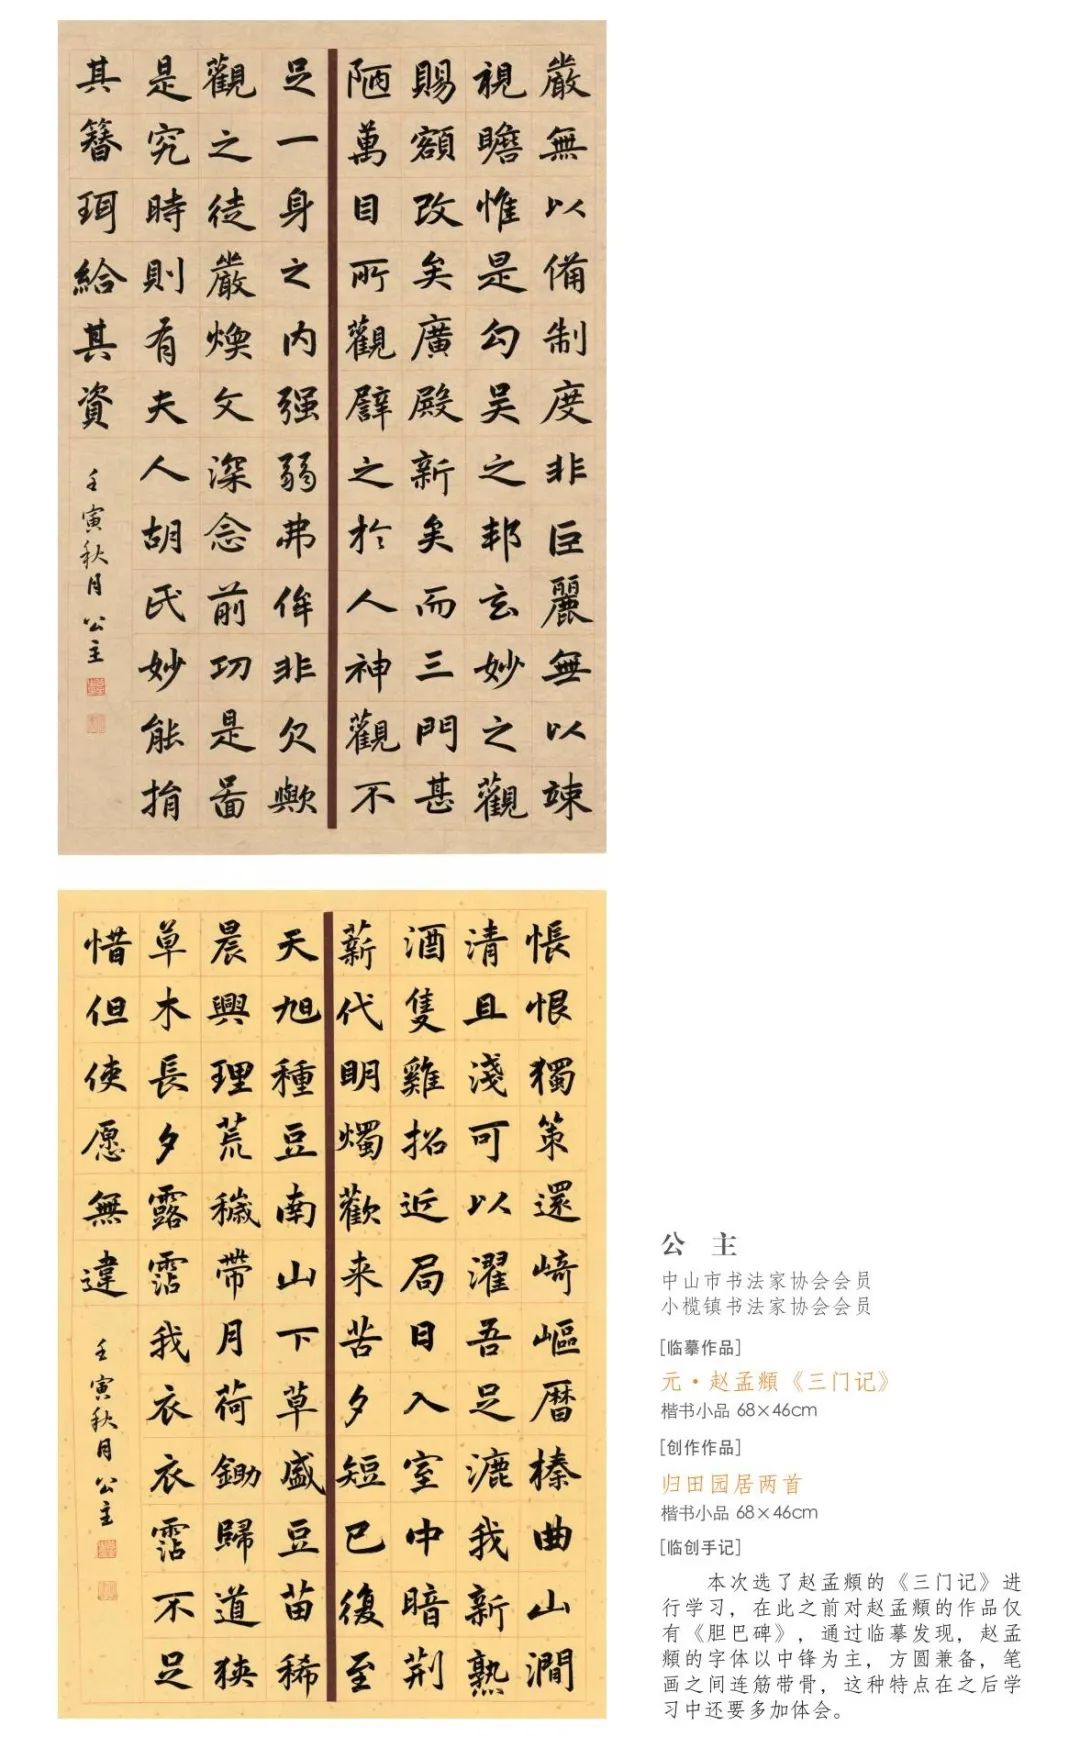 嚴無以備制度非巨麗無以竦
視瞻惟是勾吴之邦玄妙之觀
賜額改矣廣殿新矣而三門甚
陋萬目所觀譬之於人神觀不
足一身之内强弱弗侔非欠歟
觀之徒嚴煥文深念前功是啚
是究時則有夫人胡氏妙能捐
其簪珥給其資
壬寅秋月 公主
悵恨獨策還崎嶇曆榛曲山澗
清且淺可以濯吾足漉我新熟
酒隻雞招近局日入室中暗荆
薪代明燭歡来苦夕短已復至
天旭種豆南山下草盛豆苗稀
晨興理荒穢帶月荷鋤歸道狹
草木長夕露霑我衣衣霑不足
惜但使愿無違
壬寅秋月 公主
公 主
中山市书法家协会会员
小榄镇书法家协会会员
[临摹作品]
元·赵孟頫《三门记》
楷书小品 68×46cm
[创作作品]
归田园居两首
楷书小品 68×46cm
[临创手记]
本次选了赵孟頫的《三门记》进
行学习，在此之前对赵孟頫的作品仅
有《胆巴碑》，通过临摹发现，赵孟
頫的字体以中锋为主，方圆兼备，笔
画之间连筋带骨，这种特点在之后学
习中还要多加体会。